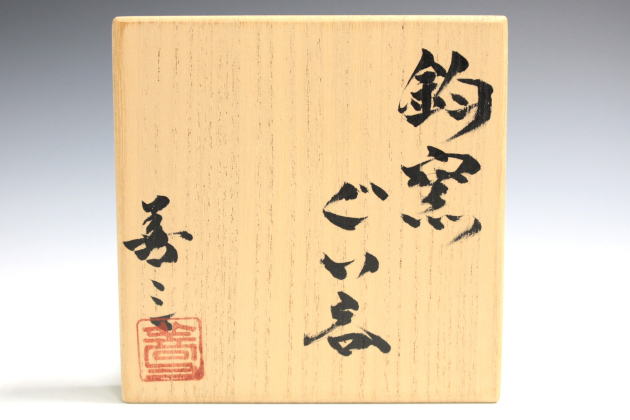 鈞窯
ぐい呑
善三